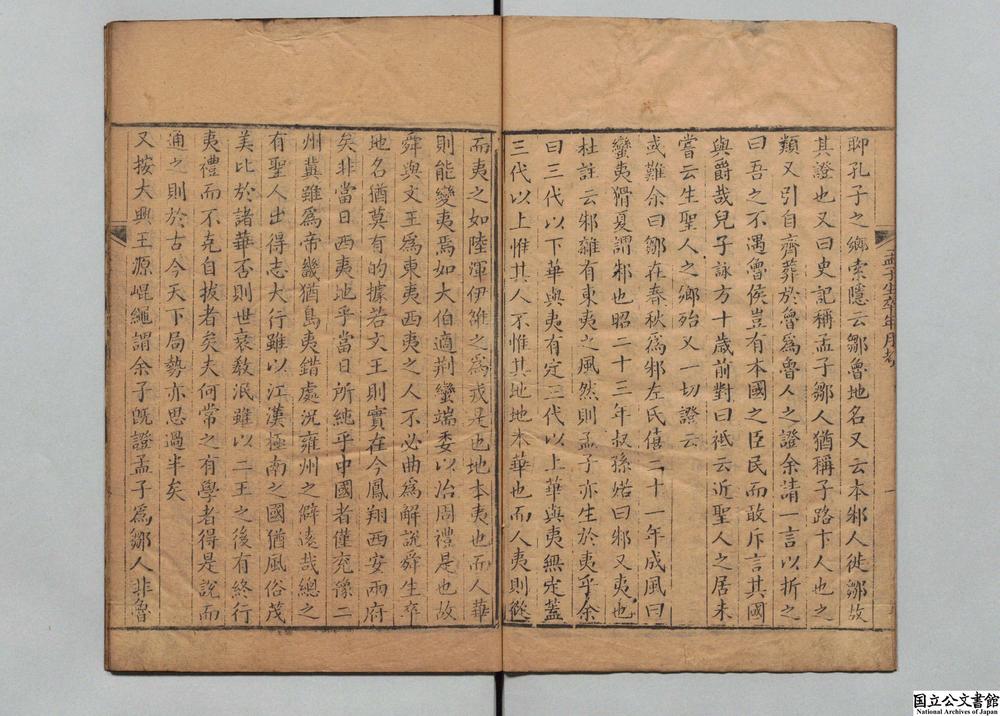 聊孔子之鄉索隱云鄒魯地名又云本邾人徙鄒故
其證也又曰史記稱孟子鄒人猶稱子路卞人也之
類又引自齊葬於魯爲魯人之證余請一言以折之
曰吾之不遇魯侯豈有本國之臣民而敢斥言其國
與爵哉兒子詠方十歲前對曰祗云近聖人之居未
嘗云生聖人之鄉殆又一切證云
或難余曰鄒在春秋爲邾左氏僖二十一年成風曰
蠻夷猾夏謂邾也昭二十三年叔孫婼曰邾又夷也
杜註云邾雜有東夷之風然則孟子亦生於夷乎余
曰三代以下華與夷有定三代以上華與夷無定蓋
三代以上惟其人不惟其地地本華也而人夷則從
而夷之如陸渾伊雒之爲戎是也地本夷也而人華
則能變夷焉如大伯適荆蠻端委以治周禮是也故
舜與文王爲東夷西夷之人不必曲爲解說舜生卒
地名猶莫有的據若文王則實在今鳳翔西安兩府
矣非當日西夷地乎當日所純乎中國者僅兗豫二
州冀雖爲帝畿猶島夷錯處況雍州之僻遠哉總之
有聖人出得志大行雖以江漢極南之國猶風俗茂
美比於諸華否則世衰教泯雖以二王之後有終行
夷禮而不克自拔者矣夫何常之有學者得是說而
通之則於古今天下局勢亦思過半矣
又按大興王源崐繩謂余子旣證孟子爲鄒人非魯
孟子生卒年月考
国立公文書館
National Archives of Japan